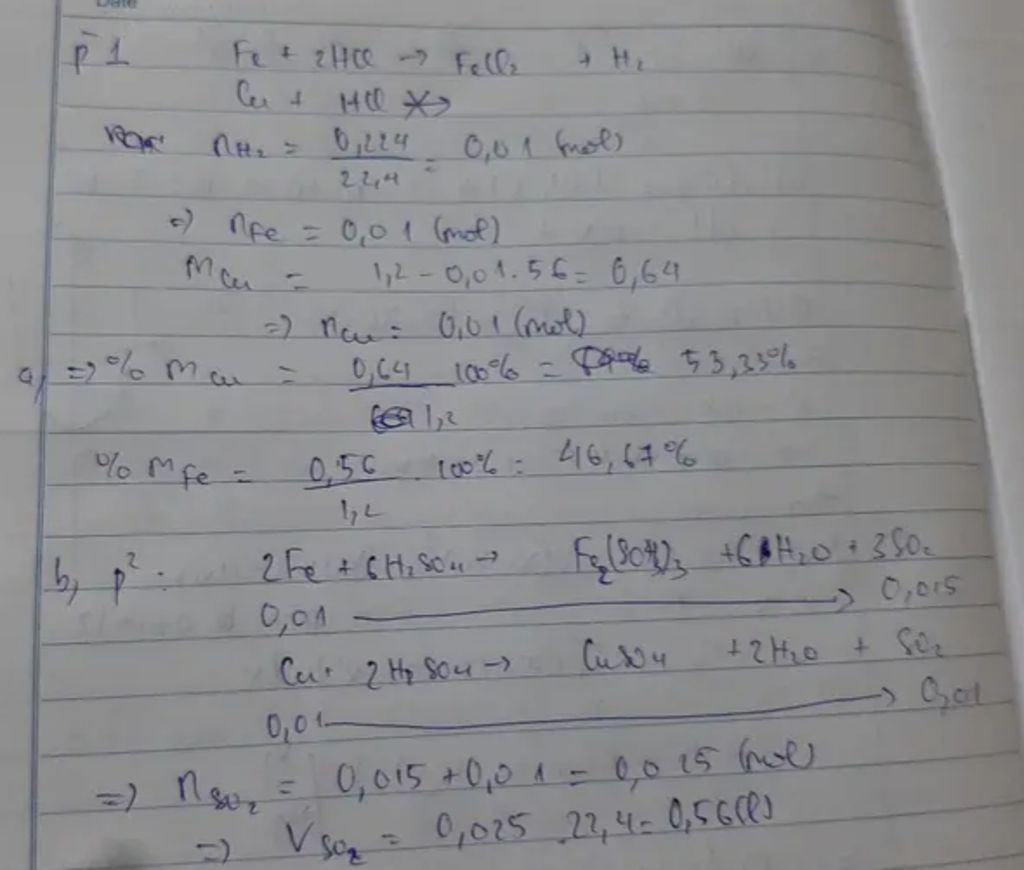 Date
p 1 Fe + 2HCl → FeCl2 + H2
Cu + HCl
nH2 = 0,224/22,4 = 0,01 (mol)
=> nFe = 0,01 (mol)
mCu = 1,2 - 0,01.56 = 0,64
=> nCu = 0,01 (mol)
a, => % mCu = 0,64/1,2 100% = 53,33%
% mFe = 0,56/1,2 . 100% = 46,67%
b, p2: 2Fe + 6H2SO4 → Fe2(SO4)3 + 6H2O + 3SO2
0,01 → 0,015
Cu + 2H2SO4 → CuSO4 + 2H2O + SO2
0,01 → 0,01
=> nSO2 = 0,015 + 0,01 = 0,025 (mol)
=> VSO2 = 0,025 . 22,4 = 0,56(l)